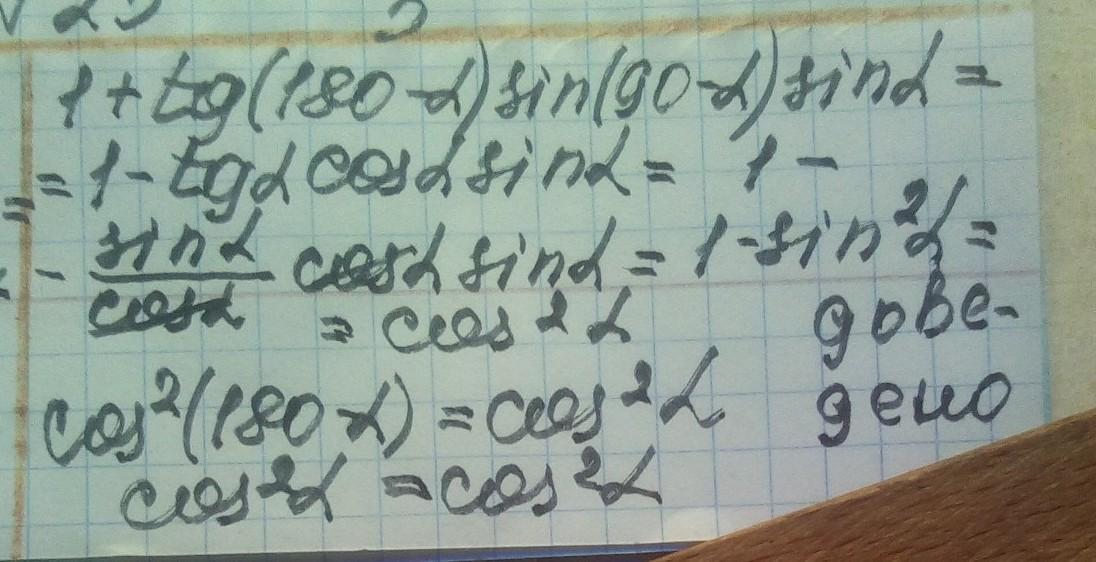 1 + tg(180-α) sin(90-α) sinα =
= 1 - tgα cosα sinα = 1 -
- sinα/cosα cosα sinα = 1 - sin²α =
= cos²α дове-
cos²(180-α) = cos²α дено
cos²α = cos²α